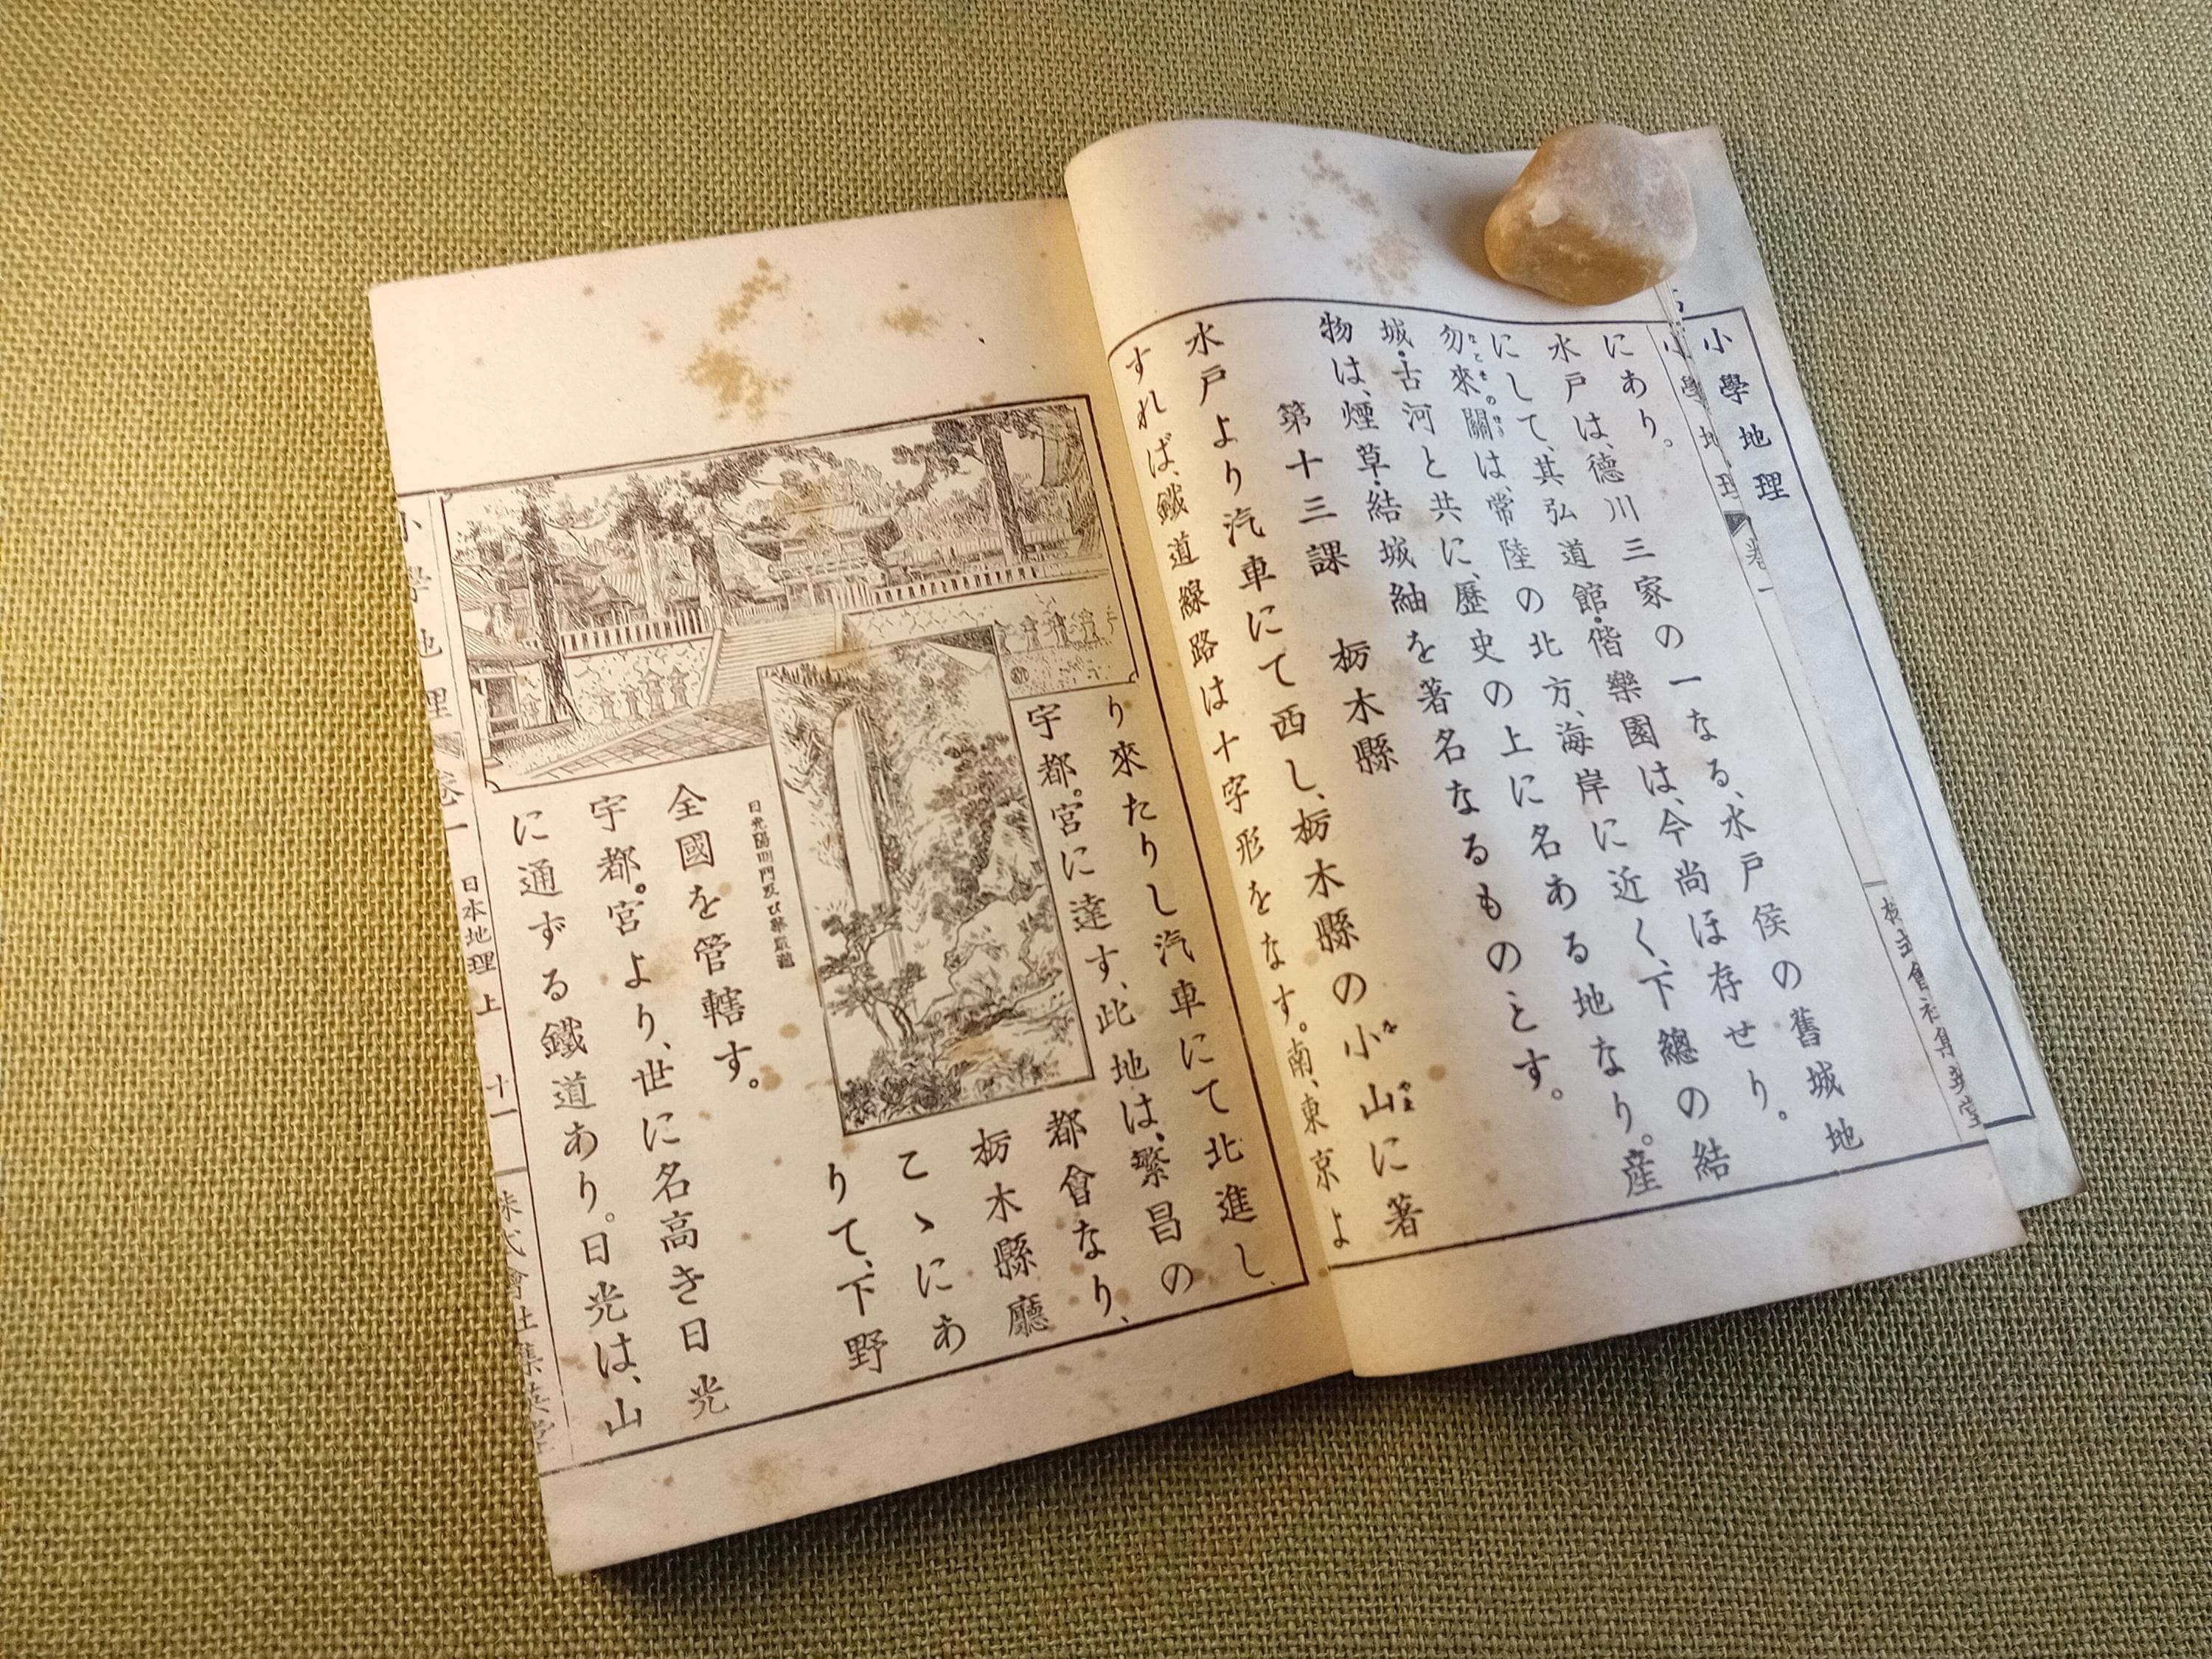 小學地理
小學地理 卷一 株式會社集英堂
にあり。
水戸は、德川三家の一なる、水戸侯の舊城地
にして、其弘道館・偕樂園は、今尚ほ存せり。
勿來。關は、常陸の北方、海岸に近く、下總の結
城・古河と共に、歷史の上に名ある地なり。産
物は、煙草・結城紬を著名なるものとす。
第十三課 栃木縣
水戸より汽車にて西し、栃木縣の小山に著
すれば、鐵道線路は十字形をなす。南、東京よ
り來たりし汽車にて北進し、
宇都。宮に達す、此地は、繁昌の
都會なり、
栃木縣廳
こゝにあ
りて、下野
日光陽明門及び華嚴瀧
全國を管轄す。
宇都。宮より、世に名高き日光
に通ずる鐵道あり。日光は、山
小學地理 卷一 日本地理 上 十一 株式會社集英堂